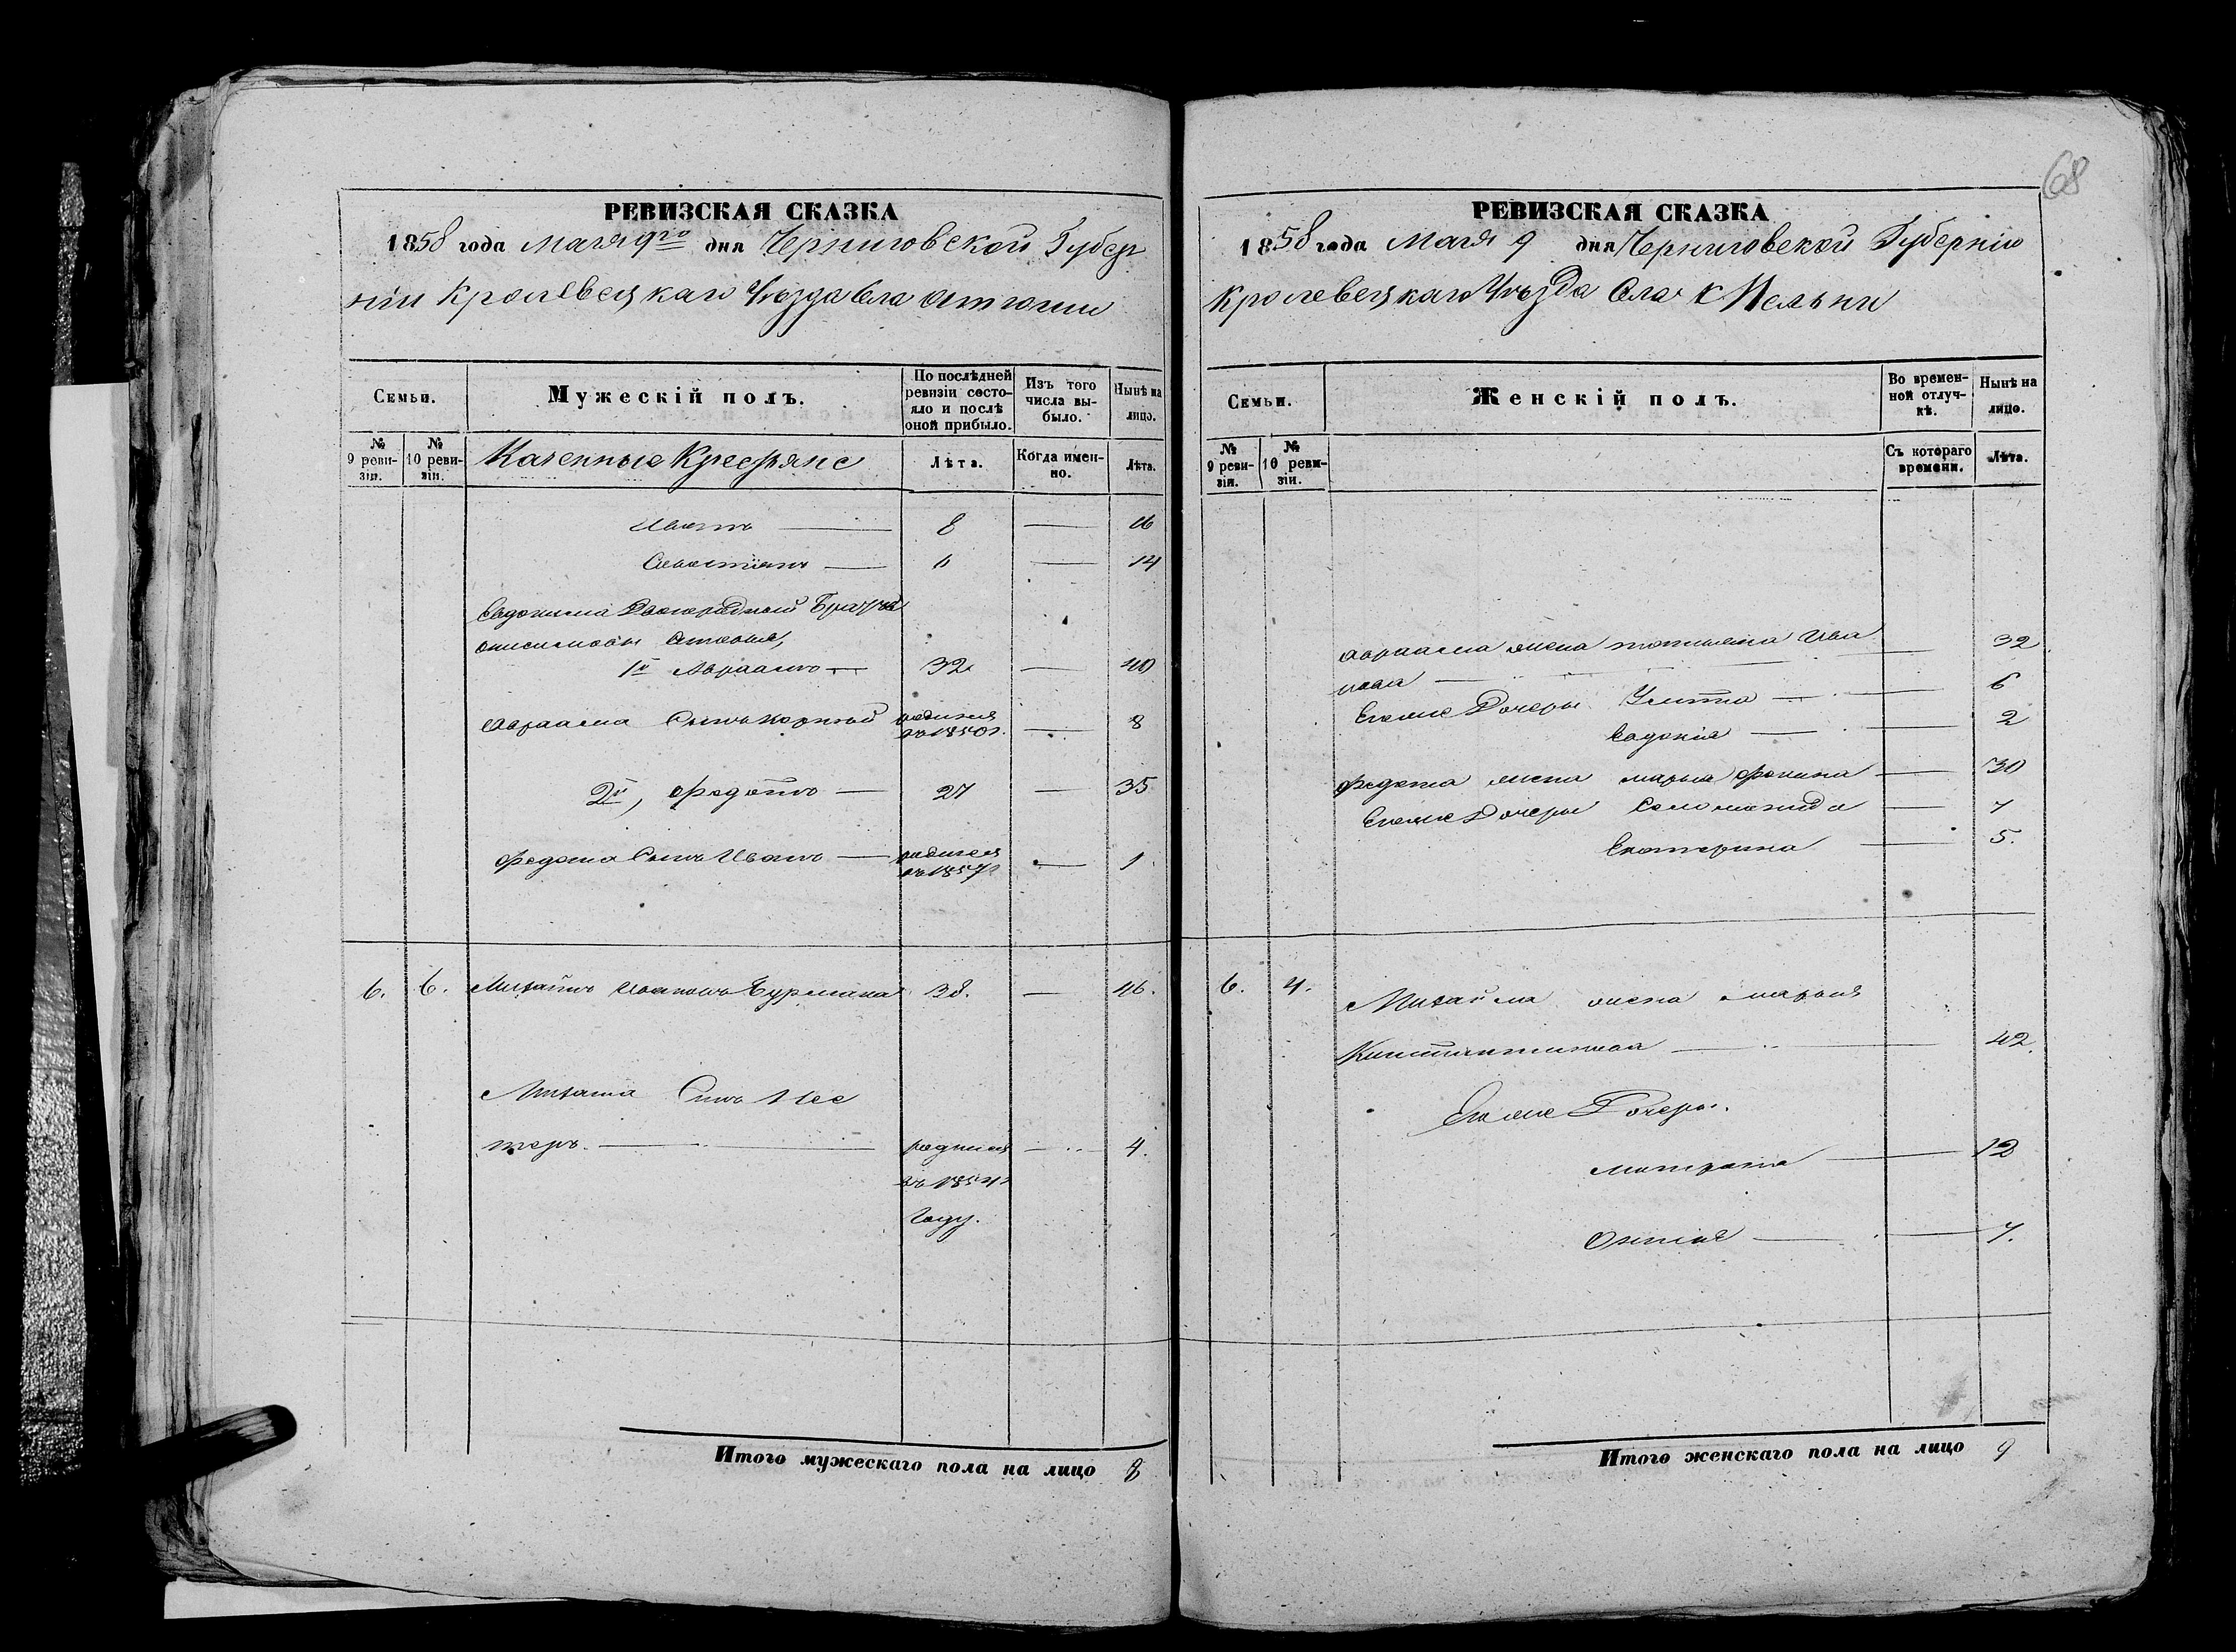 68
РЕВИЗСКАЯ СКАЗКА
1858 года Маія 9го дня Черниговской Губер
ніи Кролевецкаго Уѣзда Села
Семьи.
Мужескій полъ.
По послѣдней ревизіи состояло и послѣ оной прибыло.
Изъ того числа выбыло.
Нынѣ на лицо.
№ 9 ревизіи.
№ 10 ревизіи.
Казенные Крестьяне
Лѣта.
Когда именно.
Лѣта.
Иванъ — 8 — 16
Севостіянъ — 6 — 14
Евдокима Двоюродный Братья
Онисимовы
1й Авраамъ — 32 — 40
Авраама Сынъ Корній родился въ 1850г. — 8
2й, Федотъ — 27 — 35
Федота Сынъ Иванъ — родился въ 1857г — 1
6. 6. Михайлъ Ивановъ Бурмака 38. — 46.
Михаила Сынъ Нес
теръ. — родился — 4.
въ 1854г
Году.
Итого мужескаго пола на лицо 8
РЕВИЗСКАЯ СКАЗКА
1858 года Маія 9 дня Черниговской Губерніи
Кролевецкаго Уѣзда Села
Семьи.
Женскій полъ.
Во временной отлучкѣ.
Нынѣ на лицо.
№ 9 ревизіи.
№ 10 ревизіи.
Съ котораго времени.
Лѣта.
Авраама жена Татьяна Ива — 32
нова —
Егоже Дочери Улита — 6
Евдокія — 2
Федота жена Марья Фокина — 30
Егоже Дочери Соломонида — 7
Екатерина — 5.
6. 4. Михайла жена Марья
Константинова — 42.
Егоже Дочери.
Матрона — 12
— 7.
Итого женскаго пола на лицо 9